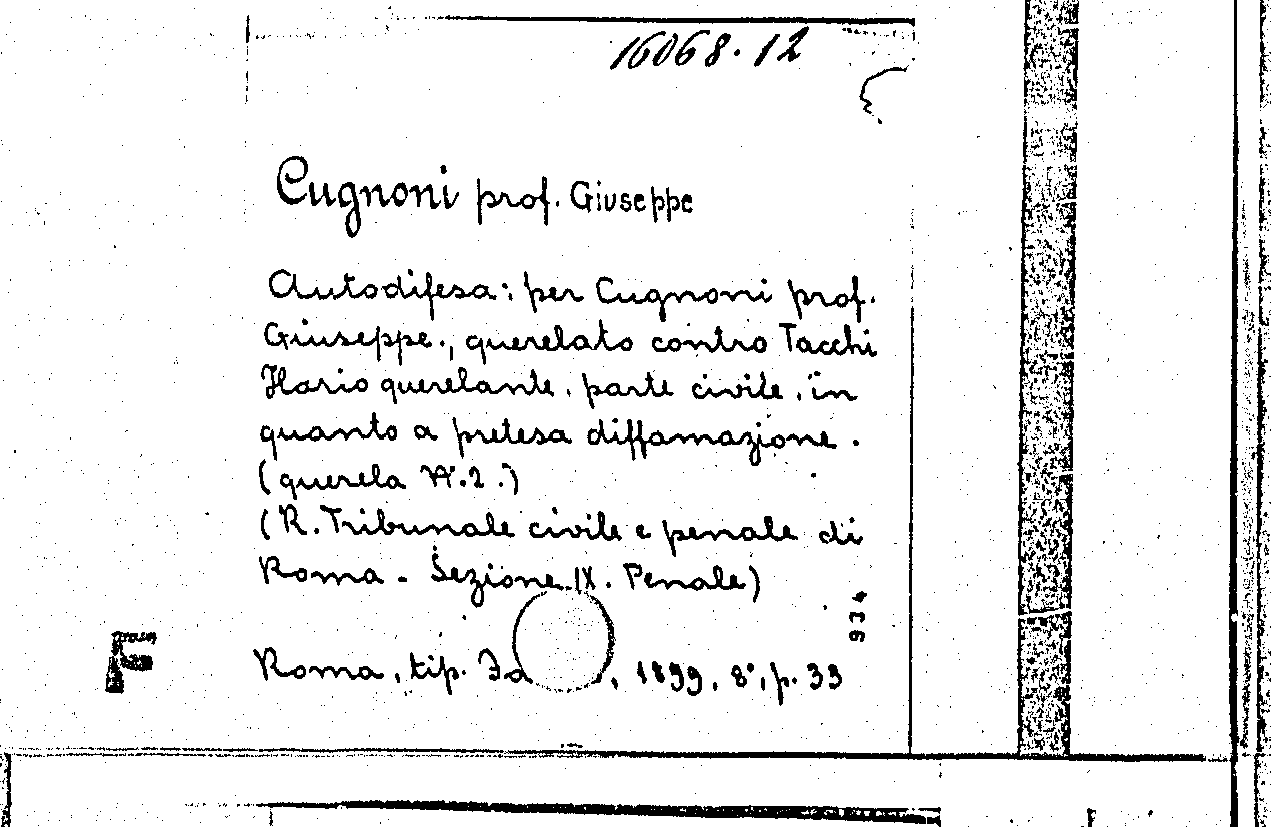 16068.12
Cugnoni prof. Giuseppe
Autodifesa: per Cugnoni prof.
Giuseppe, querelato contro Tacchi
Ilario querelante, parte civile, in
quanto a pretesa diffamazione.
(querela N. 2.)
(R. Tribunale civile e penale di
Roma - Sezione IX. Penale)
934
F
Roma, tip. , 1899, 8°, p. 33